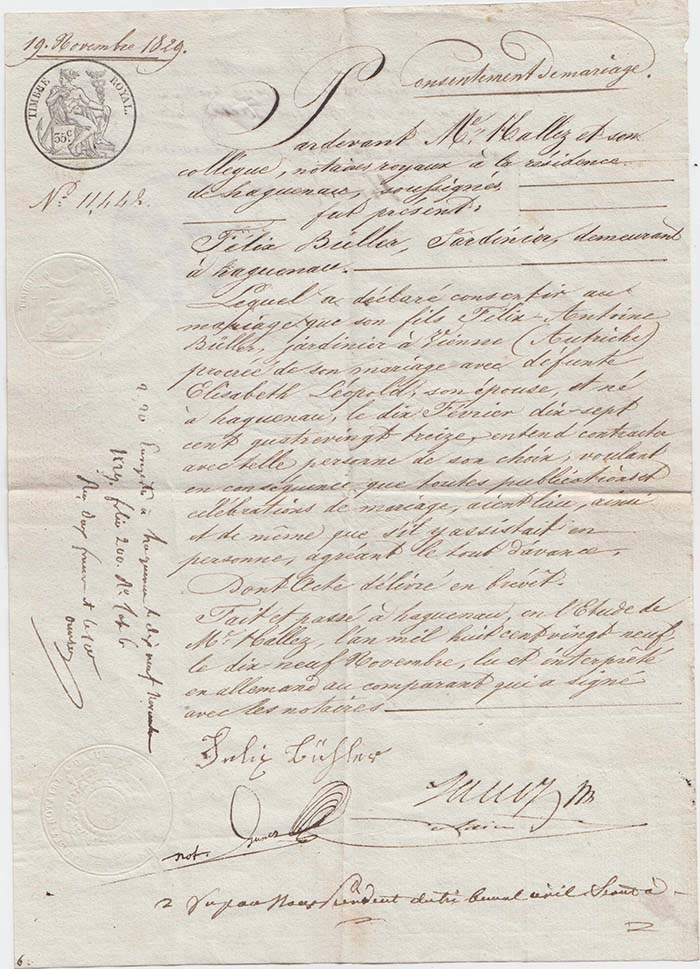 19. Novembre 1829.
Consentement de mariage.
TIMBRE ROYAL.
35 c
Pardevant Me. Hallez et son
collègue, notaires royaux à la résidence
de haguenau, soussignés
No. 11,442.
fut présent:
Félix Büller, Jardinier, demeurant
à haguenau.
Lequel a déclaré consentir au
mariage que son fils Félix-Antoine
Büller, jardinier à Vienne (Autriche)
procréé de son mariage avec défunte
Elisabeth Léopold, son épouse et né
à haguenau, le dix Février dix-sept
cent quatrevingt treize, entend contracter
avec telle personne de son choix, voulant
en conséquence que toutes publications et
célébrations de mariage, aient lieu, ainsi
et de même que s'il y assistait en
personne, agréant le tout d'avance.
Dont Acte délivré en brévêt.
Fait et passé à haguenau, en l'Etude de
Me. Hallez, l'an mil huit cent vingt neuf
le dix neuf Novembre, lu et interprêté
en allemand au comparant qui a signé
avec les notaires.
2,20 Enregistré à haguenau le dix neuf novembre
1829. folio 200.
Reçu deux francs
Felix Bühler
not.
2 Vu par Nous Président du tribunal civil Séant à
6.